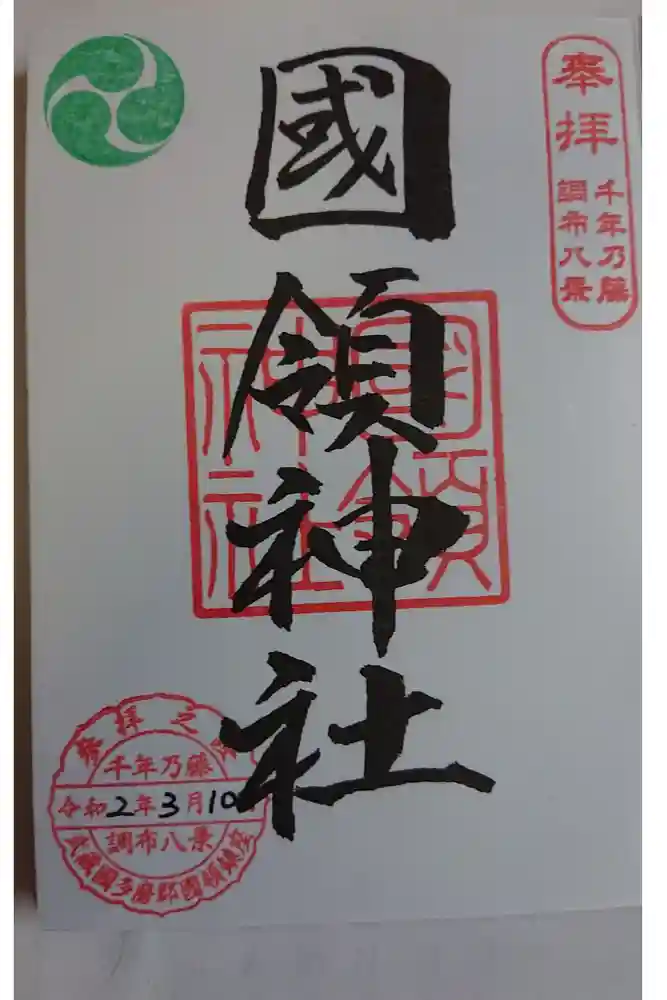 奉拝
千年乃藤
調布八景
國領神社
國領神社
参拝之
千年乃藤
令和2年3月10
調布八景
武蔵國多磨郡國領鎮座